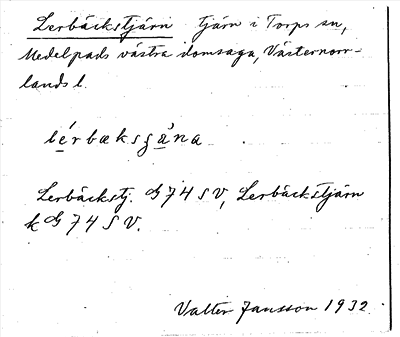 Lerbäckstjärn tjärn i Torps sn,
Medelpads västra domsaga, Västernorr-
lands l.
Lerbäckstj. G 74 SV, Lerbäckstjärn
k G 74 SV.
Valter Jansson 1932